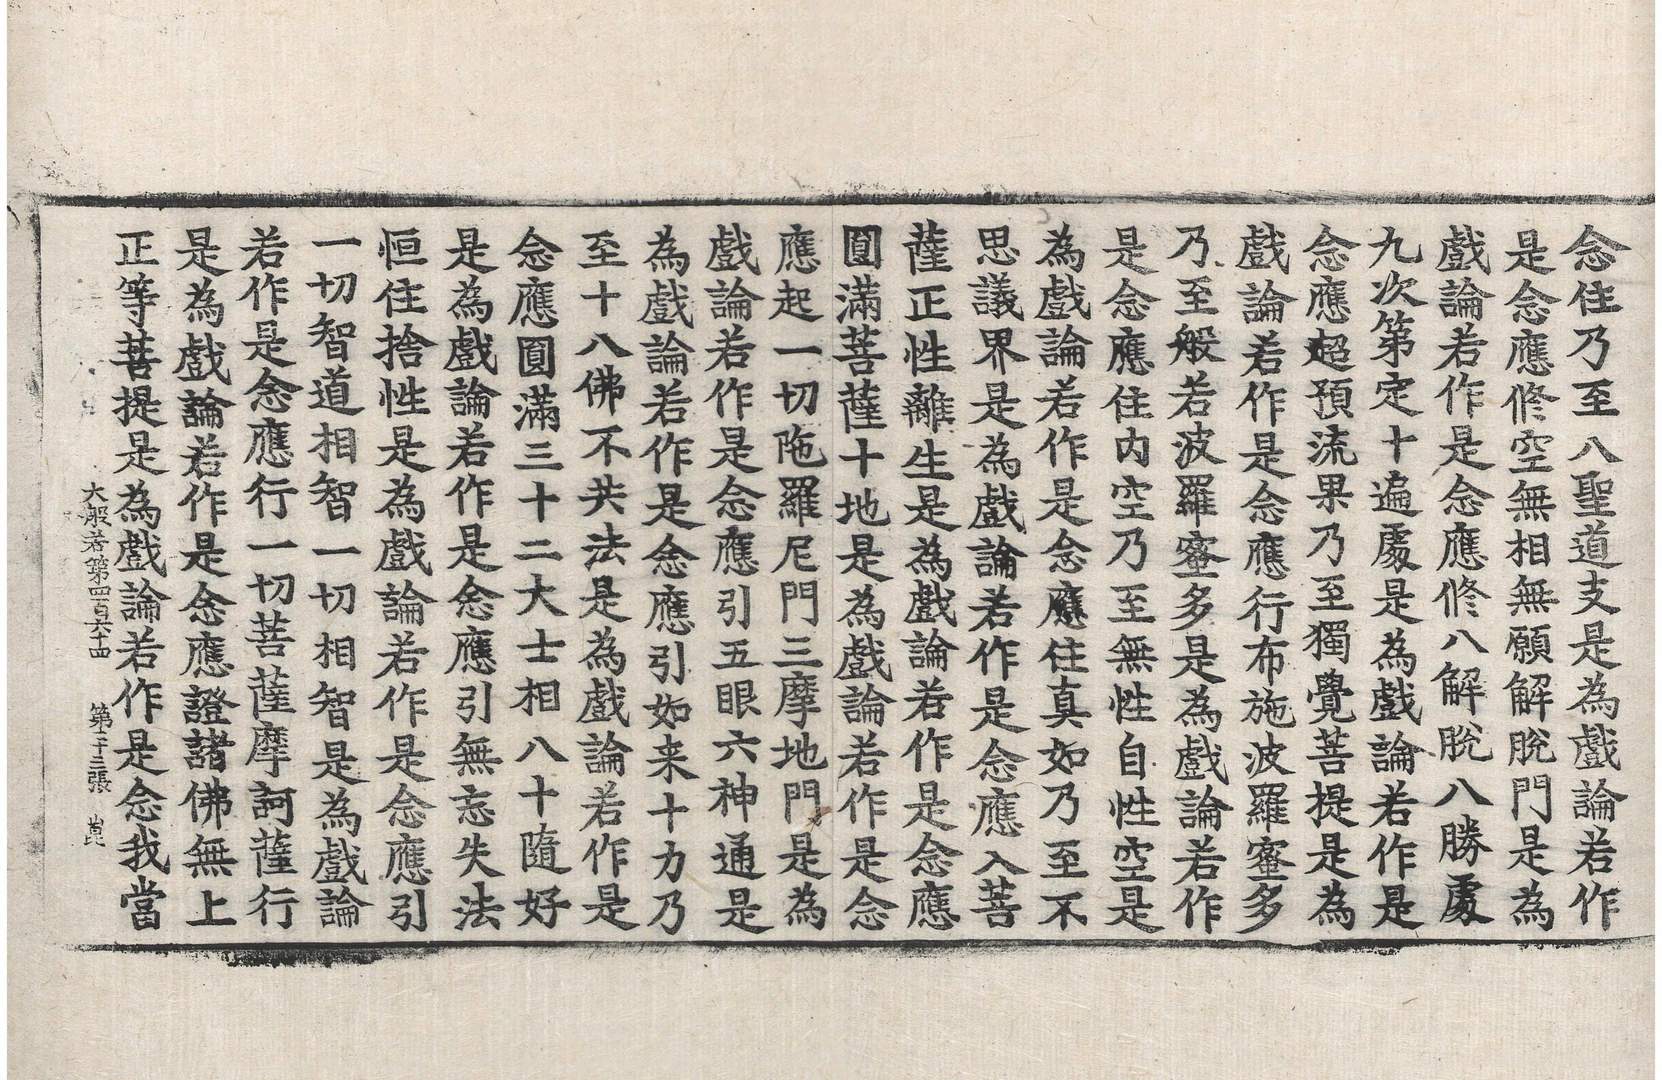 念住乃至八聖道支是為戲論若作
是念應修空無相無願解脫門是為
戲論若作是念應修八解脫八勝處
九次第定十遍處是為戲論若作是
念應超預流果乃至獨覺菩提是為
戲論若作是念應行布施波羅蜜多
乃至般若波羅蜜多是為戲論若作
是念應住內空乃至無性自性空是
為戲論若作是念應住真如乃至不
思議界是為戲論若作是念應入菩
薩正性離生是為戲論若作是念應
圓滿菩薩十地是為戲論若作是念
應起一切陁羅尼門三摩地門是為
戲論若作是念應引五眼六神通是
為戲論若作是念應引如来十力乃
至十八佛不共法是為戲論若作是
念應圓滿三十二大士相八十隨好
是為戲論若作是念應引無忘失法
恒住捨性是為戲論若作是念應引
一切智道相智一切相智是為戲論
若作是念應行一切菩薩摩訶薩行
是為戲論若作是念應證諸佛無上
正等菩提是為戲論若作是念我當
大般若第四百六十四 第二十三張 崑